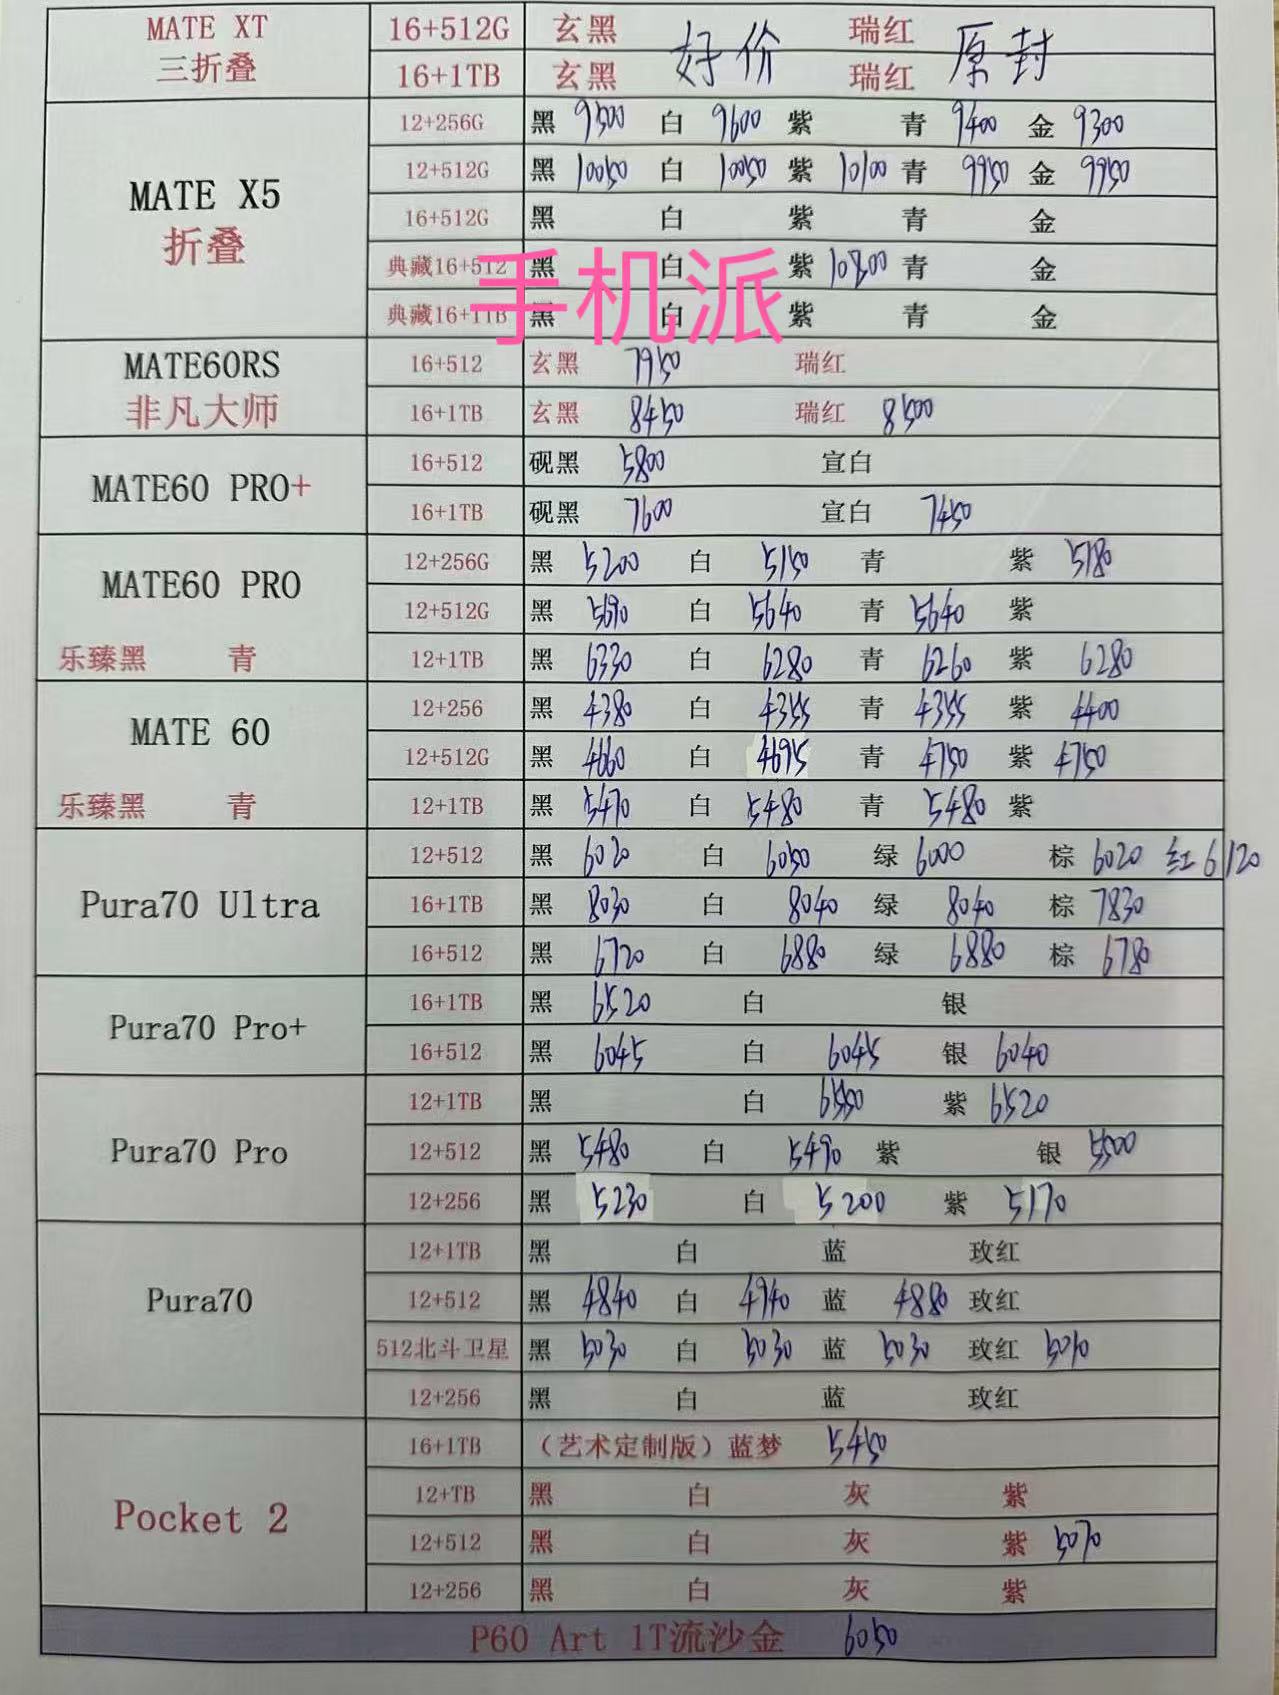 MATE XT 三折叠 16+512G 玄黑 好价 瑞红 原封
16+1TB 玄黑 瑞红
MATE X5 折叠 12+256G 黑 9500 白 9600 紫 青 9400 金 9300
12+512G 黑 10050 白 10050 紫 10100 青 9950 金 9950
16+512G 黑 白 紫 青 金
典藏16+512 黑 白 紫 10800 青 金
典藏16+1TB 黑 白 紫 青 金
手机派
MATE60RS 非凡大师 16+512 玄黑 7950 瑞红
16+1TB 玄黑 8450 瑞红 8500
MATE60 PRO+ 16+512 砚黑 5800 宣白
16+1TB 砚黑 7600 宣白 7450
MATE60 PRO 12+256G 黑 5200 白 5150 青 紫 5180
12+512G 黑 5690 白 5640 青 5640 紫
乐臻黑 青 12+1TB 黑 6330 白 6280 青 6260 紫 6280
MATE 60 12+256 黑 4380 白 4355 青 4355 紫 4400
12+512G 黑 4660 白 4695 青 4750 紫 4750
乐臻黑 青 12+1TB 黑 5470 白 5480 青 5480 紫
Pura70 Ultra 12+512 黑 6020 白 6050 绿 6000 棕 6020 红 6120
16+1TB 黑 8030 白 8040 绿 8040 棕 7830
16+512 黑 6720 白 6880 绿 6880 棕 6780
Pura70 Pro+ 16+1TB 黑 6520 白 银
16+512 黑 6045 白 6045 银 6040
Pura70 Pro 12+1TB 黑 白 6550 紫 6520
12+512 黑 5480 白 5490 紫 银 5500
12+256 黑 5230 白 5200 紫 5170
Pura70 12+1TB 黑 白 蓝 玫红
12+512 黑 4840 白 4940 蓝 4880 玫红
512北斗卫星 黑 5030 白 5030 蓝 5030 玫红
12+256 黑 白 蓝 玫红
Pocket 2 16+1TB （艺术定制版）蓝梦 5450
12+TB 黑 白 灰 紫
12+512 黑 白 灰 紫 5070
12+256 黑 白 灰 紫
P60 Art 1T流沙金 6050